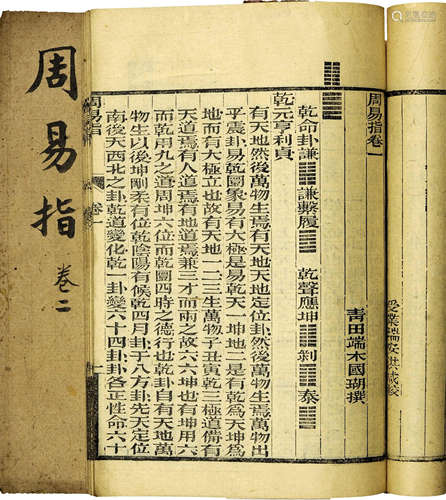 周易指
卷二
周易指卷一
青田端木國瑚撰
乾命卦謙 謙繫履 乾聲應坤 剝 泰
乾元亨利貞
有天地然後萬物生焉天地定位卦然後萬物生焉萬物出
乎震卦易乾圜象易有大極是易乾天一坤地二是有乾爲天坤爲
地而有大極立也故有天地一二三生萬物子丑寅乾三極道備有
天道焉有人道焉有地道焉兼三才而兩之故六六坤也有坤用六
而乾用九之道周坤六位而乾圜四時之德行也乾卦自有天地萬
物生以後坤剛柔有位乾陰陽有候乾四月卦于八方卦先天定位
南後天西北之卦乾道變化乾一卦變六十四卦卦各正性命六十
周易指
卷一
一
受業瑞安洪